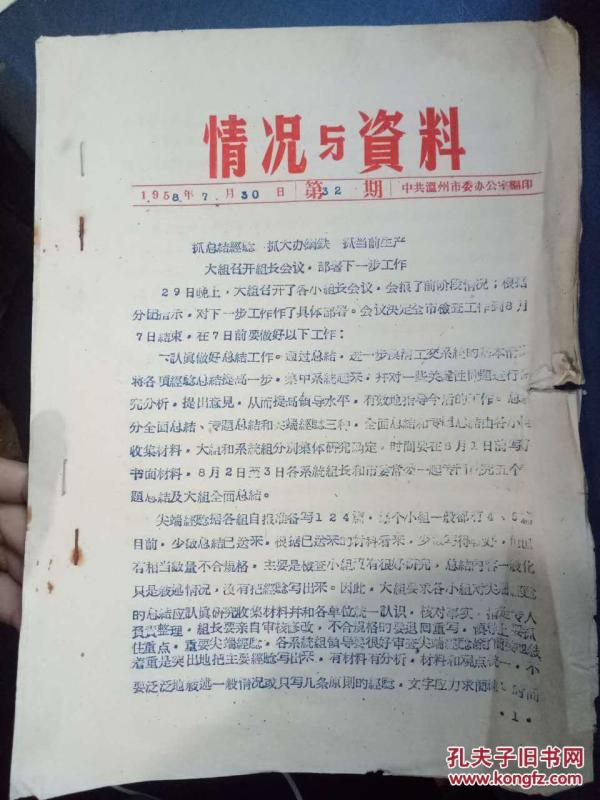 情况与資料
1958年7月30日 第32期 中共溫州市委办公室編印
抓总結經驗 抓大办鋼鉄 抓当前生产
大組召开組长会议，部署下一步工作
29日晚上，大組召开了各小組长会议，会报了前阶段情况；根据
分团指示，对下一步工作作了具体部署。会议决定全市檢查工作到8月
7日結束，在7日前要做好以下工作：
一、认眞做好总結工作。通过总結，进一步摸清工交系統的基本情
将各項經驗总結提高一步，集中系統起来，幷对一些关鍵性问題进行
究分析，提出意見，从而提高領导水平，有效地指导今后的工作。总
分全面总結、专題总結和尖端經驗三种，全面总結和专題总結由各小
收集材料，大組和系統組分别集体研究确定，时間要在8月1日前写
书面材料，8月2日至3日各系統組长和市委常委一起研究五个
題总結及大組全面总結。
尖端經驗据各組自报准备写124篇，每个小組一般都有4、5篇
目前，少数总結已送来，根据已送来的材料看来，少数写得較好，但
有相当数量不合規格，主要是檢查小組沒有很好研究，总結內容一般化
只是敍述情况，沒有把經驗写出来。因此，大組要求各小組对尖端經驗
的总結应认眞研究收集材料幷和各单位統一认识，核对事实，指定专人
負責整理，組长要亲自审核修改，不合規格的要退回重写，
住重点，重要尖端經驗，各系統組領导要很好审查
着重是突出地把主要經驗写出来，有材料有分析，材料和观点統一，不
要泛泛地敍述一般情况或只写几条原則的經驗，文字应力求簡
·1·
孔夫子旧书网
www.kongfz.com